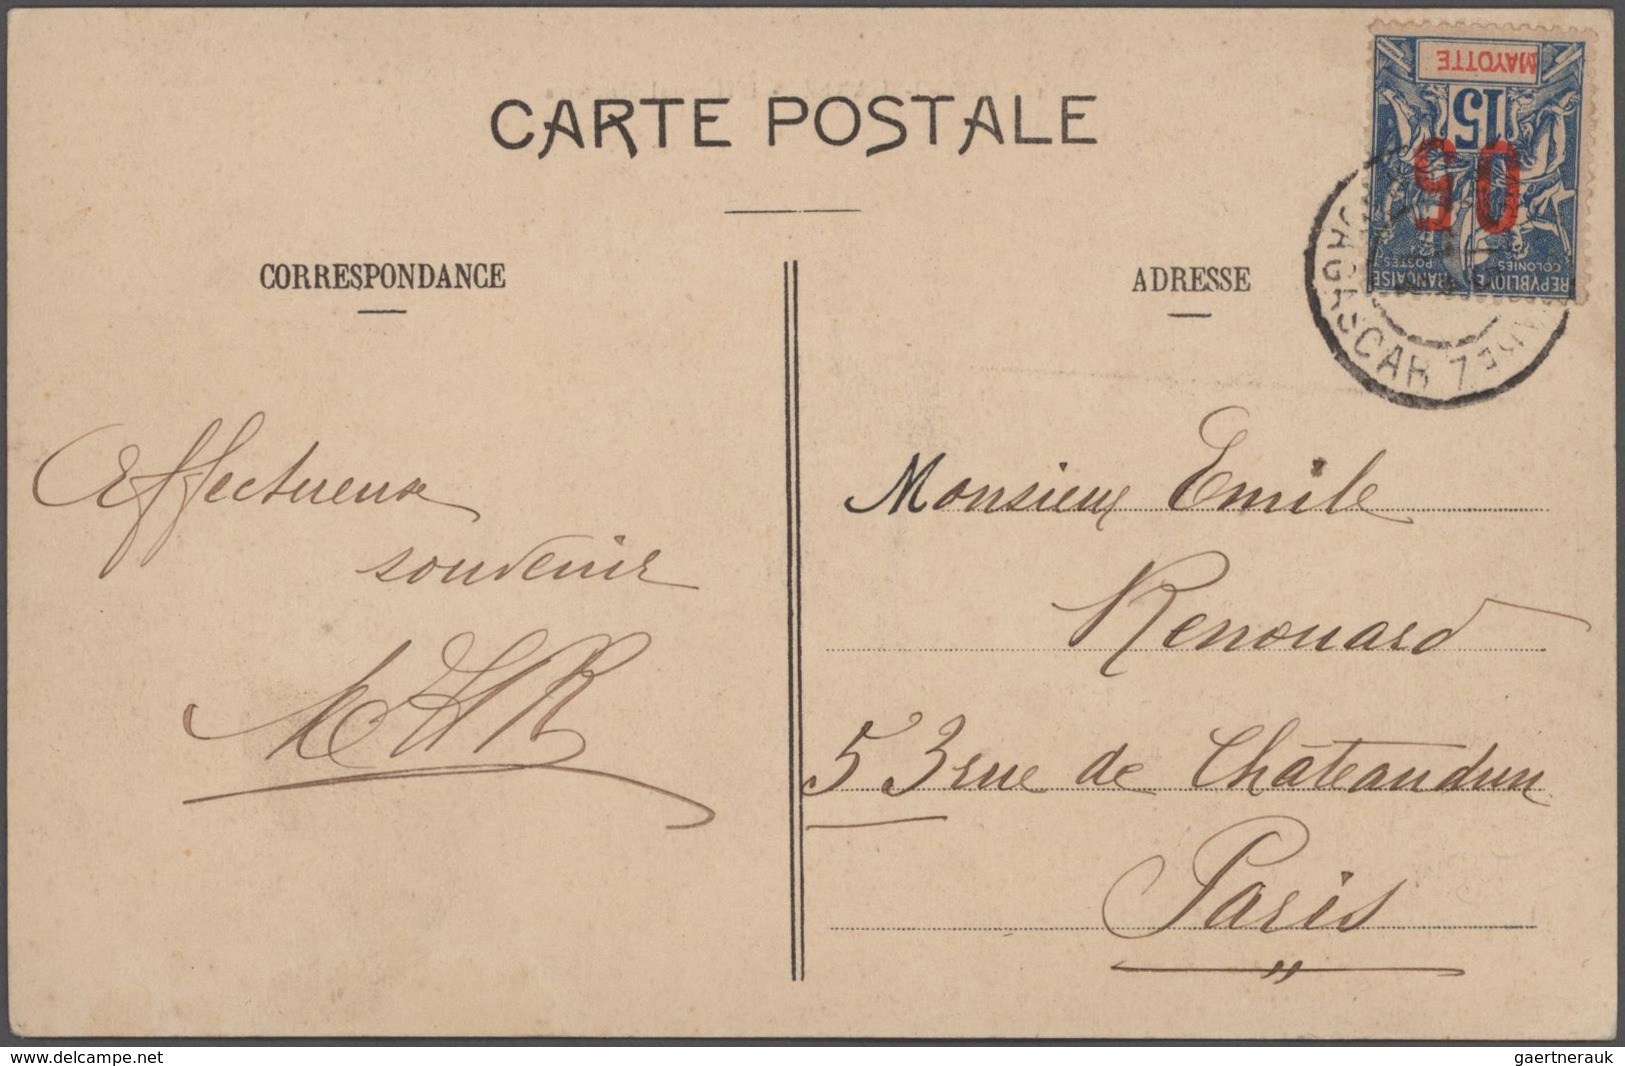 CARTE POSTALE
CORRESPONDANCE
ADRESSE
MAYOTTE
15
05
REPVBLIQVE FRANÇAISE
COLONIES POSTES
MADAGASCAR
Affectueux
souvenir
Monsieur Emile
Renouard
53 rue de Châteaudun
Paris
www.delcampe.net
gaertnerauk